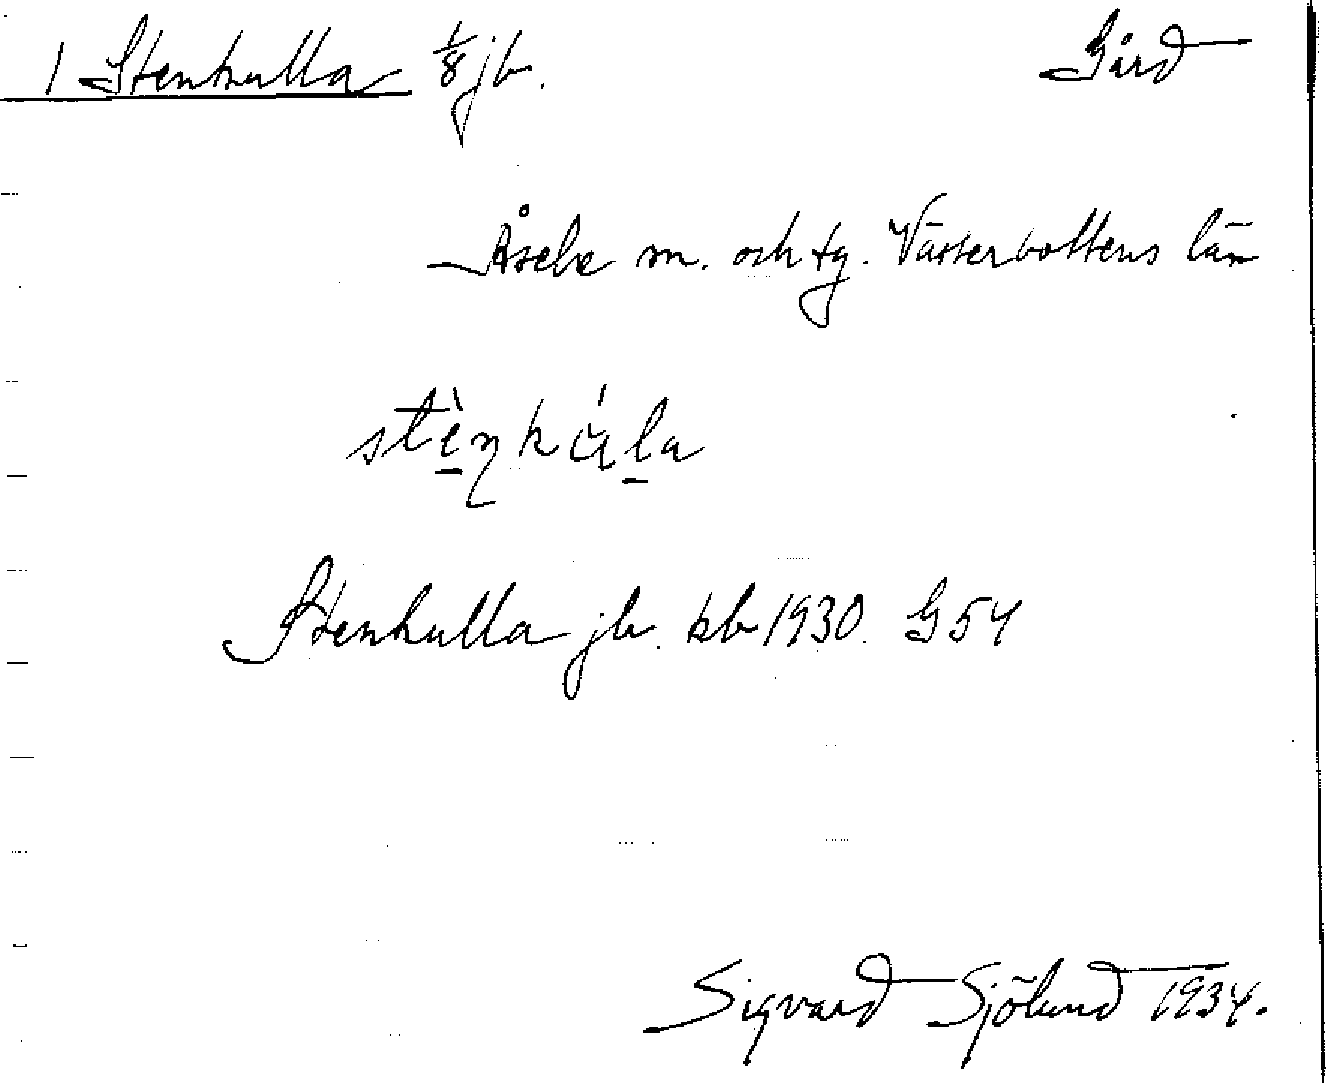 1 Stenkulla 1/8 jb. Gård
Åsele sn. och tg. Västerbottens län
Stenkulla jb. kb 1930. G 54
Sigvard Sjölund 1934.